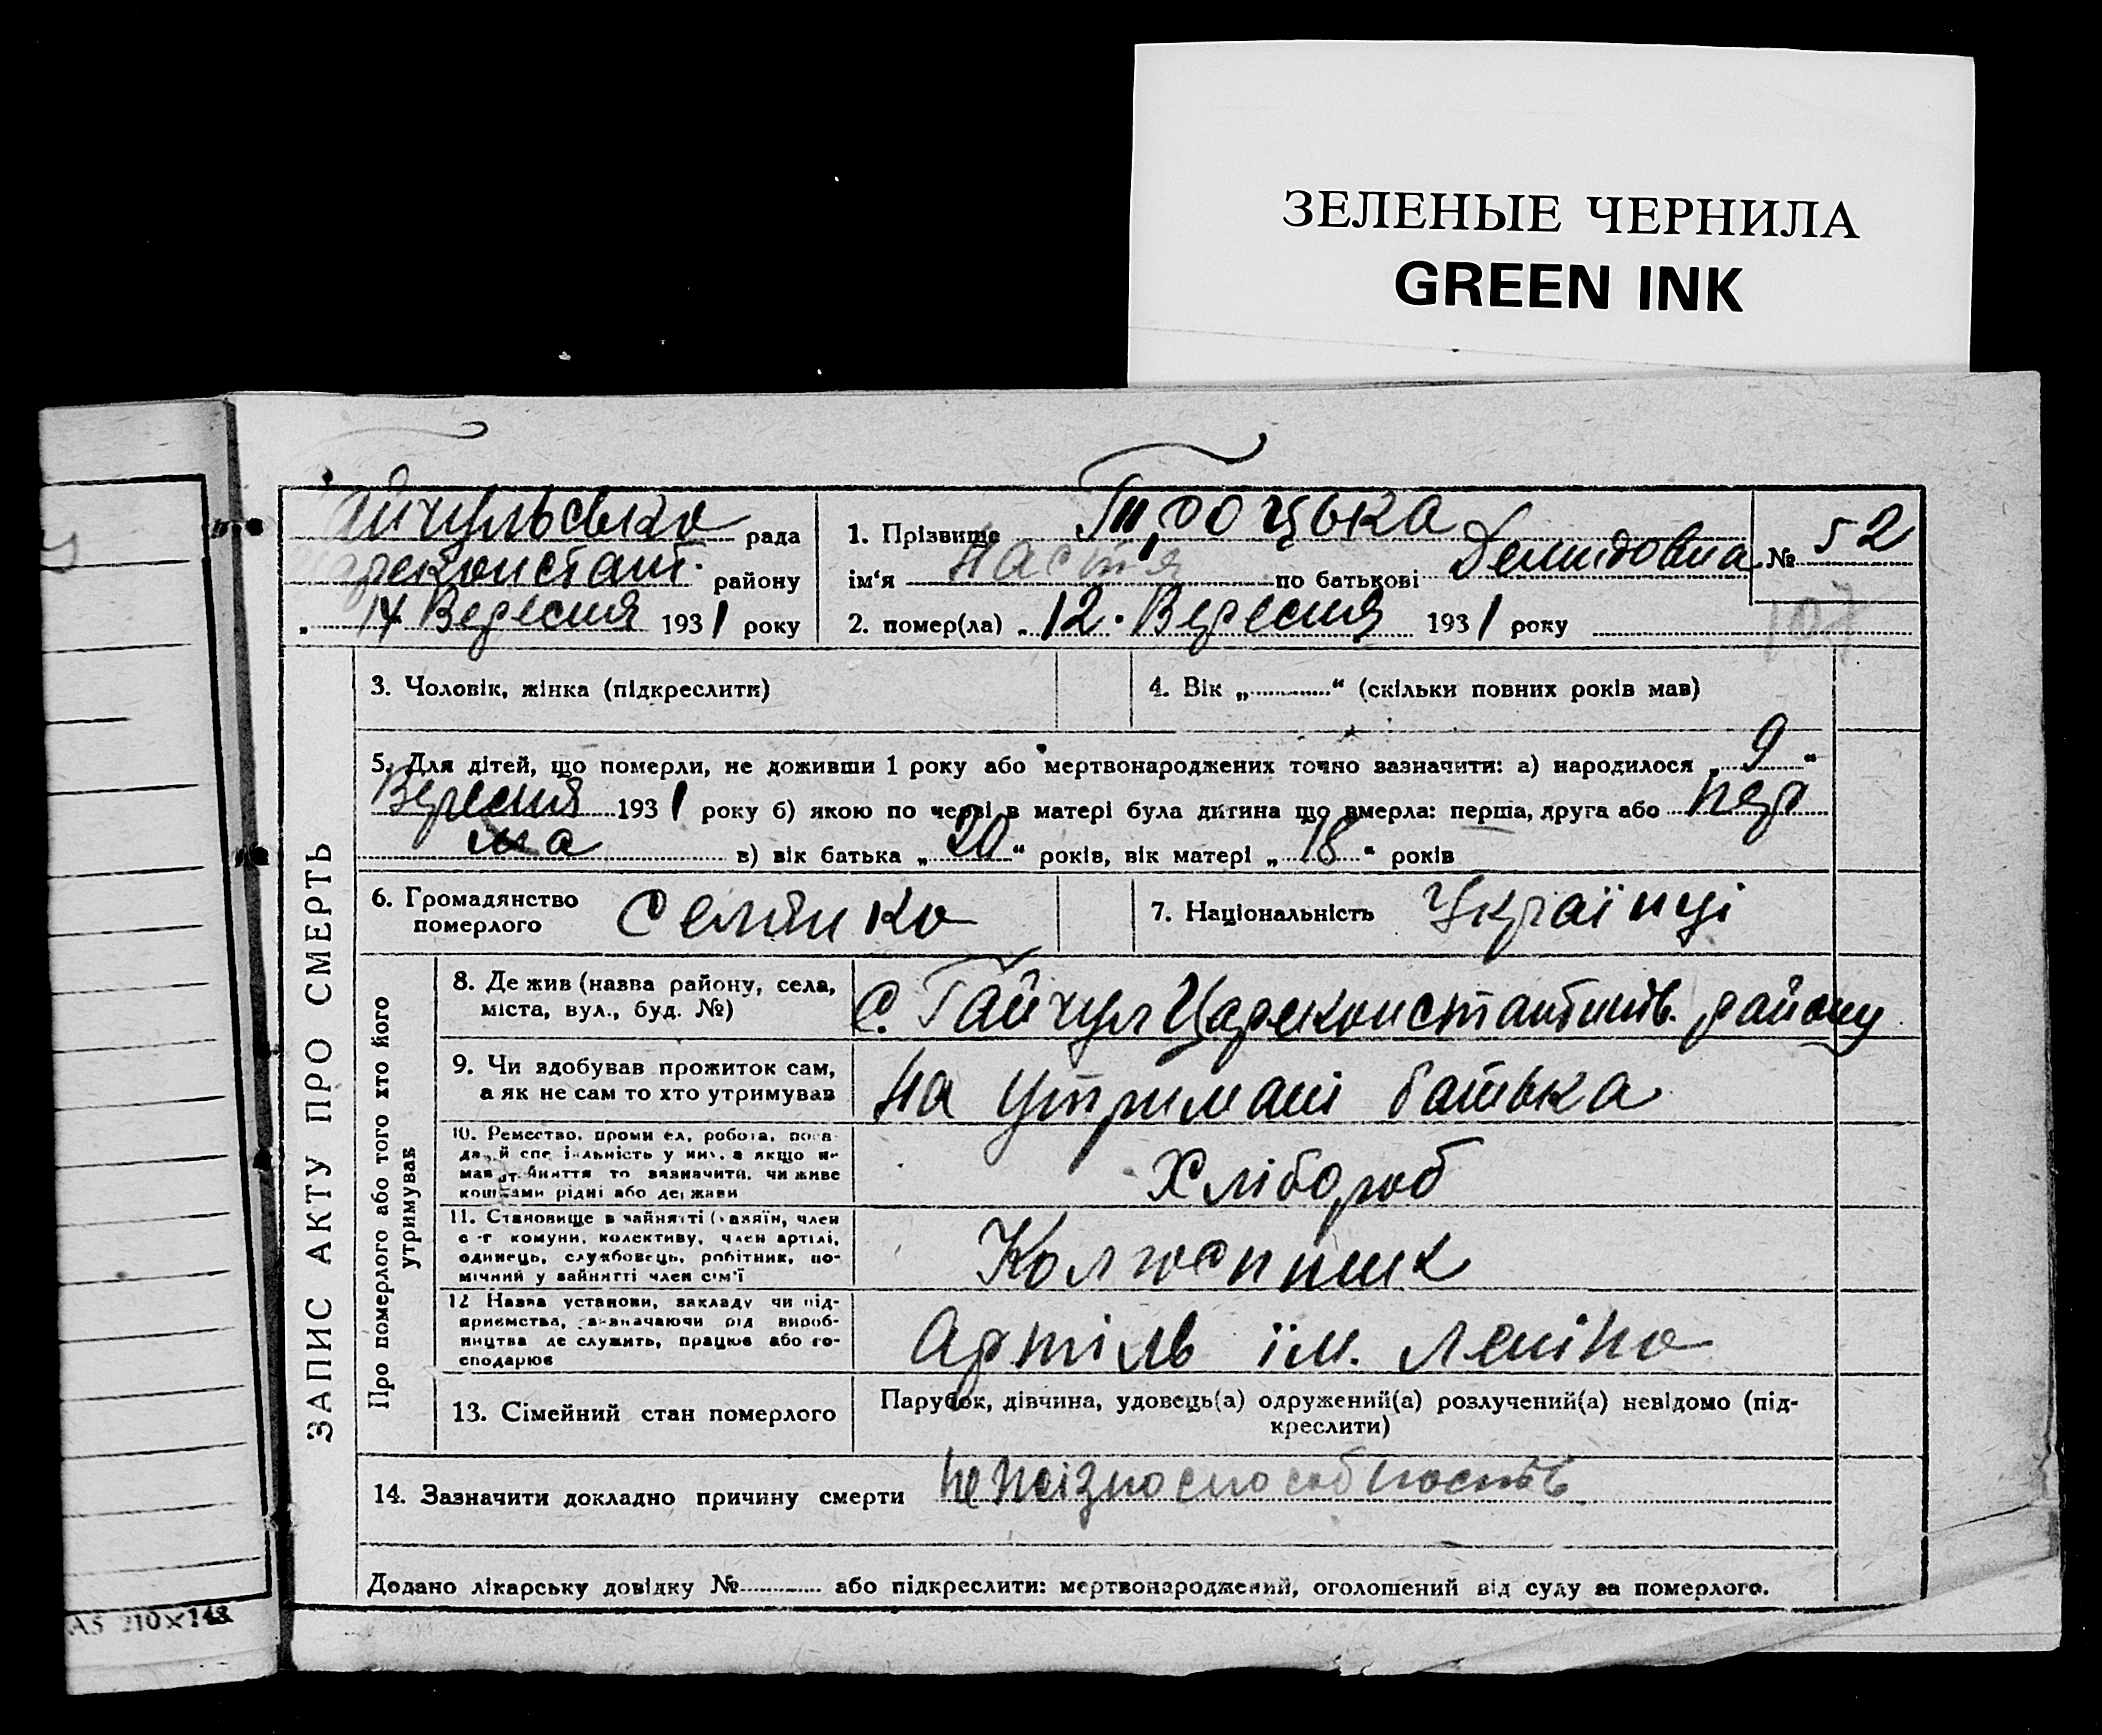 ЗЕЛЕНЫЕ ЧЕРНИЛА
GREEN INK
Гайчульська рада
Цареконстант. району
„ 14 Вересня 1931 року
1. Прізвище Троцька
ім‘я Настя по батькові Демидовна
№ 52
2. помер(ла) „ 12 . Вересня 1931 року
107
ЗАПИС АКТУ ПРО СМЕРТЬ
3. Чоловік, жінка (підкреслити)
4. Вік „............“ (скільки повних років мав)
5. Для дітей, що померли, не доживши 1 року або мертвонароджених точно зазначити: а) народилося „ 9 “
Вересня 1931 року б) якою по черзі в матері була дитина що вмерла: перша, друга або пер
ша в) вік батька „ 20 “ років, вік матері „ 18 “ років
6. Громадянство
померлого
Селянка
7. Національність Українці
Про померлого або того хто його
утримував
8. Де жив (назва району, села,
міста, вул., буд. №)
С. Гайчул Цареконстантинів. району
9. Чи здобував прожиток сам,
а як не сам то хто утримував
На утримані батька
10. Ремество, промисел, робота, поса-
да й спеціяльність у них, а якщо не
мав заняття то зазначити, чи живе
коштами рідні або держави
Хлібороб
11. Становище в зайнятті (хазяїн, член
с-г комуни, колективу, член артілі,
одинець, службовець, робітник, по-
мічний у зайнятті член сім'ї
Колгоспник
12 Назва установи, закладу чи під-
приємства, зазначаючи рід вироб-
ництва де служить, працює або го-
сподарює
Артіль їм. Леніна
13. Сімейний стан померлого
Парубок, дівчина, удовець(а) одружений(а) розлучений(а) невідомо (під-
креслити)
14. Зазначити докладно причину смерти
Додано лікарську довідку №............ або підкреслити: мертвонароджений, оголошений від суду за померлого.
А5 210×148